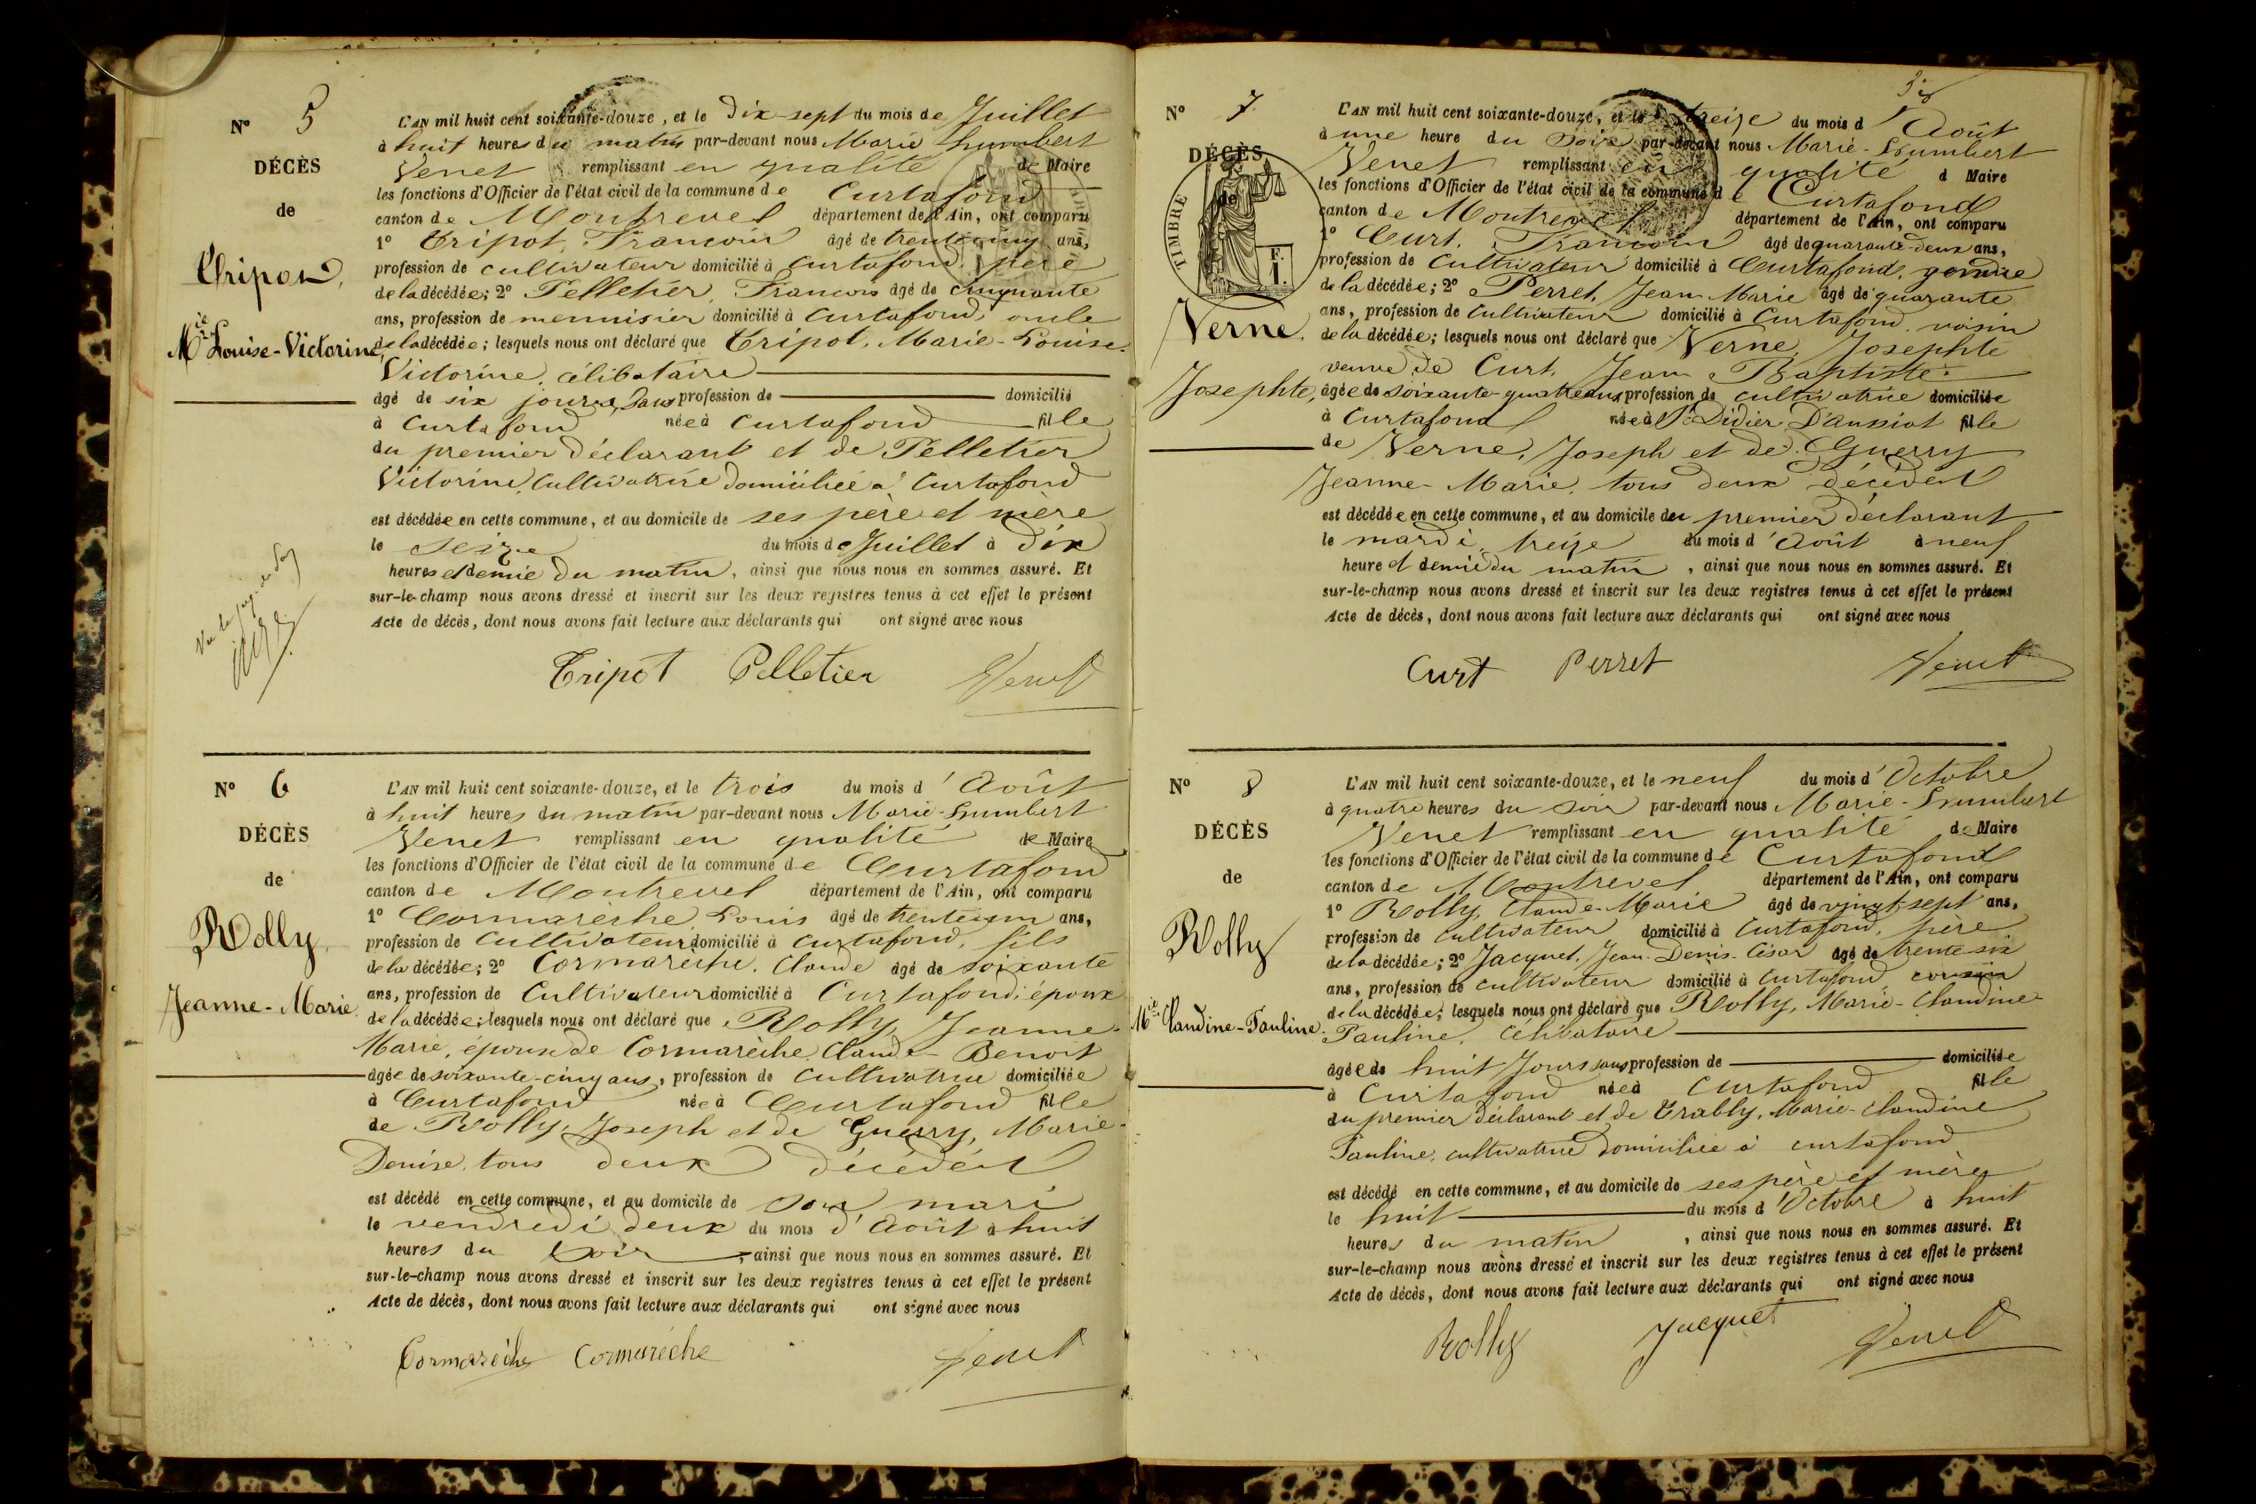 N° 5
DÉCÈS
de
Tripoz,
Mie Louise-Victorine
L'AN mil huit cent soixante-douze, et le Dix-sept du mois de Juillet
à huit heures du matin par-devant nous Marie humbert
Venet remplissant en qualité de Maire
les fonctions d'Officier de l'état civil de la commune de Curtafond
canton de Montrevel département de l'Ain, ont comparu
1° Tripot, François âgé de trente cinq ans,
profession de cultivateur domicilié à Curtafond, père
de la décédée; 2° Pelletier, François âgé de cinquante
ans, profession de menuisier domicilié à Curtafond, oncle
de la décédée; lesquels nous ont déclaré que Tripot, Marie-Louise-
Victorine, célibataire
âgé de six jours, sans profession de domicilié
à Curtafond née à Curtafond fille
du premier déclarant et de Pelletier
Victorine, Cultivatrice domiciliée à Curtafond
est décédée en cette commune, et au domicile de ses père et mère
le seize du mois de Juillet à dix
heures et demie du matin, ainsi que nous nous en sommes assuré. Et
sur-le-champ nous avons dressé et inscrit sur les deux registres tenus à cet effet le présent
Acte de décès, dont nous avons fait lecture aux déclarants qui ont signé avec nous
Tripot Pelletier Venet
N° 6
DÉCÈS
de
Rolly,
Jeanne-Marie
L'AN mil huit cent soixante-douze, et le trois du mois d'Août
à huit heures du matin par-devant nous Marie-humbert
Venet remplissant en qualité de Maire
les fonctions d'Officier de l'état civil de la commune de Curtafond
canton de Montrevel département de l'Ain, ont comparu
1° Cormarèche, Louis âgé de trente un ans,
profession de Cultivateur domicilié à Curtafond, fils
de la décédée; 2° Cormarèche, Claude âgé de soixante
ans, profession de Cultivateur domicilié à Curtafond, époux
de la décédée; lesquels nous ont déclaré que Rolly, Jeanne-
Marie, épouse de Cormarèche, Claude-Benoit
âgée de soixante-cinq ans, profession de Cultivatrice domiciliée
à Curtafond née à Curtafond fille
de Rolly, Joseph et de Guerry, Marie-
Denise, tous deux décédés
est décédé en cette commune, et au domicile de son mari
le vendredi deux du mois d'Août à huit
heures du soir, ainsi que nous nous en sommes assuré. Et
sur-le-champ nous avons dressé et inscrit sur les deux registres tenus à cet effet le présent
Acte de décès, dont nous avons fait lecture aux déclarants qui ont signé avec nous
Cormarèche Cormarèche Venet
N° 7
DÉCÈS
de
TIMBRE
F.
1.
Verne,
Josephte,
L'AN mil huit cent soixante-douze, et le treize du mois d'Août
à une heure du soir par-devant nous Marie-humbert
Venet remplissant en qualité d Maire
les fonctions d'Officier de l'état civil de la commune de Curtafond
canton de Montrevel département de l'Ain, ont comparu
1° Curt, François âgé de quarante-deux ans,
profession de Cultivateur domicilié à Curtafond, gendre
de la décédée; 2° Perret, Jean-Marie âgé de quarante
ans, profession de Cultivateur domicilié à Curtafond, voisin
de la décédée; lesquels nous ont déclaré que Verne, Josephte
veuve de Curt, Jean-Baptiste
âgée de soixante-quatre ans profession de cultivatrice domiciliée
à Curtafond née à St Didier D'aussiat fille
de Verne, Joseph et de Guerry
Jeanne-Marie, tous deux décédés
est décédée en cette commune, et au domicile du premier déclarant
le mardi, treize du mois d'Août à neuf
heure et demie du matin, ainsi que nous nous en sommes assuré. Et
sur-le-champ nous avons dressé et inscrit sur les deux registres tenus à cet effet le présent
Acte de décès, dont nous avons fait lecture aux déclarants qui ont signé avec nous
Curt Perret Venet
N° 8
DÉCÈS
de
Rolly
Mie Claudine-Pauline
L'AN mil huit cent soixante-douze, et le neuf du mois d'Octobre
à quatre heures du soir par-devant nous Marie-humbert
Venet remplissant en qualité de Maire
les fonctions d'Officier de l'état civil de la commune de Curtafond
canton de Montrevel département de l'Ain, ont comparu
1° Rolly, Claude-Marie âgé de vingt-sept ans,
profession de Cultivateur domicilié à Curtafond, père
de la décédée; 2° Jacquet, Jean-Denis-César âgé de trente-six
ans, profession de cultivateur domicilié à Curtafond, cousin
de la décédée; lesquels nous ont déclaré que Rolly, Marie-Claudine-
Pauline, célibataire
âgée de huit Jours sans profession de domiciliée
à Curtafond née à Curtafond fille
du premier déclarant et de Trably, Marie-Claudine
Pauline, cultivatrice domiciliée à Curtafond
est décédé en cette commune, et au domicile de ses père et mère
le huit du mois d'Octobre à huit
heures du matin, ainsi que nous nous en sommes assuré. Et
sur-le-champ nous avons dressé et inscrit sur les deux registres tenus à cet effet le présent
Acte de décès, dont nous avons fait lecture aux déclarants qui ont signé avec nous
Rolly Jacquet Venet